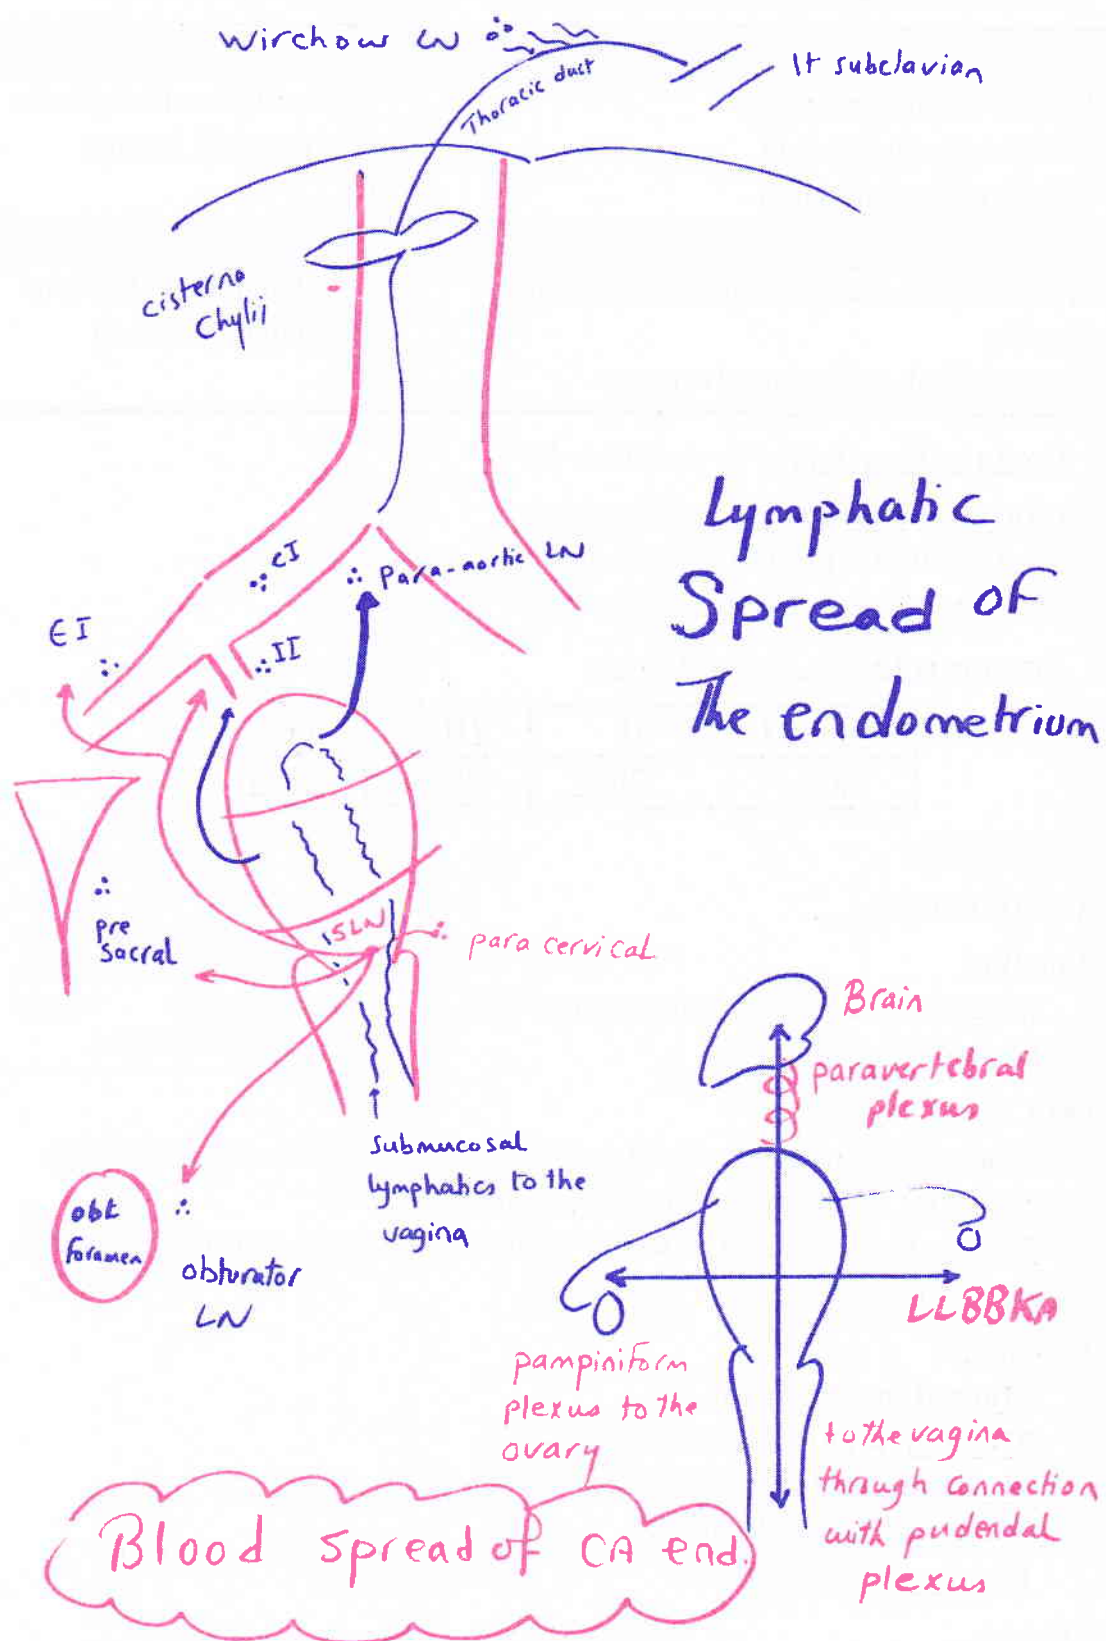 Wirchow LN
Thoracic duct
lt subclavian
cisterna
Chylii
CI
Para-aortic LN
EI
II
Lymphatic
Spread of
The endometrium
pre
sacral
5LN
para cervical
submucosal
lymphatics to the
vagina
obt
foramen
obturator
LN
Brain
paravertebral
plexus
LLBBKA
pampiniform
plexus to the
ovary
to the vagina
through connection
with pudendal
plexus
Blood spread of CA end.